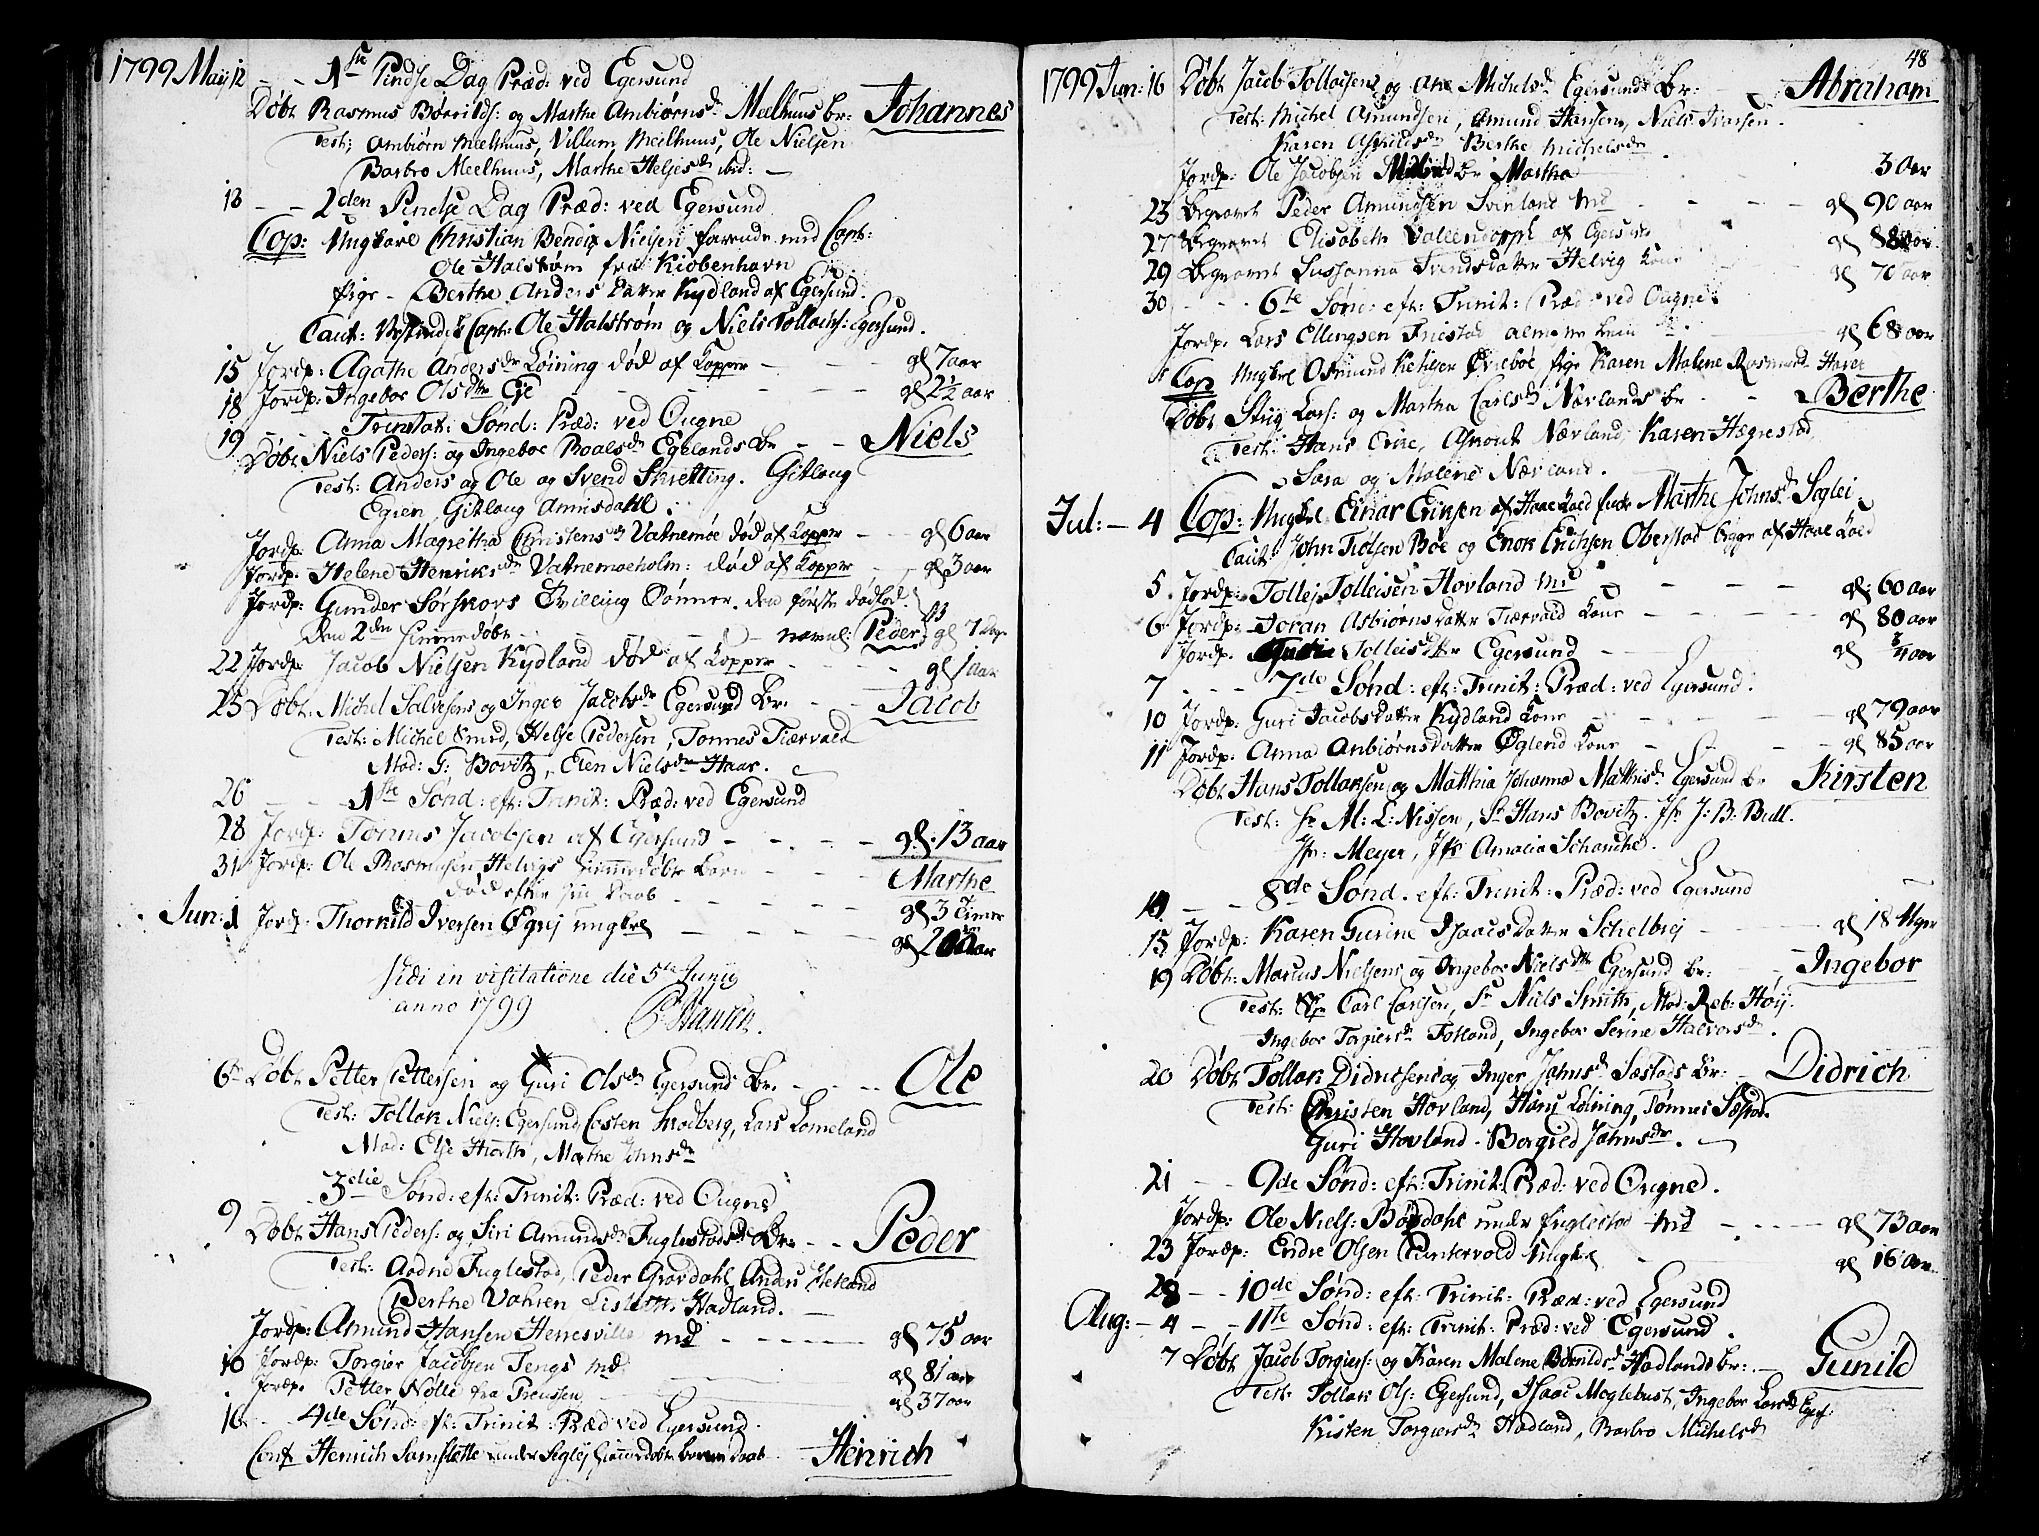 1799 Maij 12 - - 1ste Pindse Dag Præd: ved Egersund
Døbt Rasmus Børrilds: og Marthe Ambiørnsdr Meelhuus br: Johannes
Test: Ambiørn Meelhuus, Villum Meelhuus, Ole Nielsen
Barbro Meelhuus, Marthe Heljesdr ibid: -
13 - - 2den Pindse Dag Præd: ved Egersund
Cop: Ungkarl Christian Bendix Nielsen farende med Capt:
Ole Halstrøm fra Kiøbenhavn
pige - Berthe Anders Datter Kydland af Egersund.
Caut: Capt: Ole Halstrøm og Niels Tollachs: Egersund.
15 Jordp: Agathe Andersdr Løining død af Kopper - - - gl 7 aar
18 Jordp: Ingebor Olsdtr Eie - - - gl 2½ aar
19 - - - Trinitat: Sønd: Præd: ved Ougne
Døbt Niels Peders: og Ingebor Roalsdr Egelands br - - Niels
Test: Anders og Ole og Svend Skretting. Gitloug
Egien Gitloug Amdsdahl.
Jordp: Anna Magretha Christensdr Vatnemoe død af Kopper - - gl 6 aar
Jordp: Helene Henriksdr Vatnemoeholm: død af Kopper - - gl 3 aar
Jordp: Gunder Sørskovs Tvilling Sønner. den første dødfød.
den 2den hiemedøbt - - - navnl: Peder gl 7 Dage
22 Jordp: Jacob Nielsen Kydland død af Kopper - - - gl 1 aar
25 Døbt: Michel Salvesens og Inger Jacobsdr Egersund br: - - Jacob
Test: Michel Smed, Helje Pedersen, Tønnes Tiærvald
Mad: G: Bovitz, Elen Nielsdr Haar.
26 - - - 1ste Sønd: eft: Trinit: Præd: ved Egersund
28 Jordp: Tønnes Jacobsen af Egersund - - - - gl. 13 aar
31 Jordp: Ole Rasmusen Helvigs hiemmedøbte Barn - - - Marthe
død efter sin Daab - - - gl 3 Timer
Jun: 1 Jordp: Thorkild Iversen Øgrej ungkrl - - - gl 20 aar
Vidi in visitatione die 5te Junij
anno 1799 P: Hansen.
6te Døbt Petter Pettersen og Guri Olsdr Egersund br. - - - Ole
Test: Tollak Niels: Egersund, Costen Lars Lomeland
Mad: Else Hiorth, Marthe Johnsdr
9 - - 3die Sønd: eft: Trinit: Præd: ved Ougne
Døbt Hans Peders: og Siri Amundsdr Fuglestads br: - - Peder
Test: Aadne Fuglestad, Peder Grøsdahl, Anders Hetland
Berthe Vahsen Lisbeth Hadland. -
Jordp: Amund Hansen Hemesville md - - - - gl 75 aar
10 Jordp: Torgier Jacobsen Tengs md. - - - gl 81 aar
Jordp: Petter Nolle fra Preussen - - - gl 37 aar
16 - - 4de Sønd: eft: Trinit: Præd: ved Egersund.
Conf Henrich Samslette under Seglej hiemedøbte barns Daab Heinrich
48
1799 Jun: 16 Døbt Jacob Tollacsens og Ane Michelsdr Egersunds br: - - Abraham
Test: Michel Amundsen, Amund Hansen, Niels Ivarsen.
Karen Asvildsdr Berthe Michelsdr
Jordp: Ole Jacobsen br Martha 3 aar
23 Begravet Peder Amundsen Svinland md - - - gl 90 aar
27 Begravet Elisabeth Vallendorph af Egersund gl 88 aar
29 Begravet Sussanna Svendsdatter Helvig Kone - - gl 70 aar
30 - - - 6te Sønd: eft: Trinit: Præd: ved Ougne.
Jordp: Lars Ellingsen Friestad - - - gl 68 aar
Cop Ungkrl Osmund Ketilsen Øvreboe pige Karen Malene Rasmusdr Haver
Døbt Stug Lars: og Martha Carlsdr Nærlands br - - Berthe
Test: Hans Eine, Asmont Nærland, Karen Hægrestad,
Sara og Malene Nærland.
Jul: - 4 Cop: Ungkrl Einar Eriksen af Haae Kald Marthe Johnsdr Seglei
Caut: John Tiølsen Bøe og Enok Erichsen Oberstad begge af Haae Kald
5 Jordp: Tollej Tolleisen Hovland md - - - gl: 60 aar
6 Jordp: Joran Asbiørnsdatter Tiærvald Kone - - - gl 80 aar
Jordp: Tolleisdtter Egersund - - - gl ¾ aar
7 - - - 7de Sønd: eft: Trinit: Præd: ved Egersund.
10 Jordp: Guri Jacobsdatter Kydland Kone - - - gl 79 aar
11 Jordp: Anna Anbiørnsdatter Øglend Kone - - - gl 85 aar
Døbt Hans Tollaksen og Matthia Johanna Mathisdr Egersund br Kirsten
Test: Hr M: L: Nissen, Sr Hans Bovitz. Jfr J: B: Bull.
Jfr: Meyer, Jfr Amalia Schanche.
14 - - 8de Sønd. eft: Trinit: Præd: ved Egersund
15 Jordp: Karen Gurine Isaacsdatter Schelbrej - - gl 18 Uger
19 Døbt: Marcus Nielsens og Ingebor Nielsdtr Egersund br: - - Ingebor
Test: Carl Carlsen, Sr Niels Smith, Mad: Reb: Høij.
Ingebor Torgiersdr Totland, Ingebor Serine Halvorsdr.
20 Døbt Tollak Didricsens og Inger Johnsdr Sæstads br: - Didrich
Test: Christen Hovland, Hans Løining, Tønnes Sæstad.
Guri Hovland. Borgred Johnsdr. -
21 - - 9de Sønd: eft: Trinit: Præd: ved Ougne.
Jordp: Ole Niels: Bøgdahl under Fuglestad md - - - gl 73 aar
23 Jordp: Endre Olsen Puntervold Ungkrl - gl 16 aar.
28 - - 10de Sønd: eft: Trinit: Præd: ved Egersund
Aug: - 4 - - 11te Sønd: eft: Trinit: Præd: ved Egersund.
7 Døbt Jacob Torgiers: og Karen Malene Børrildsdr Hadlands br: - Gunild
Test: Tollak Ols: Egersund, Isaac Moglebust, Ingebor Larsdr Egers:
Kisten Torgiersdr Hadland, Barbro Michelsdr